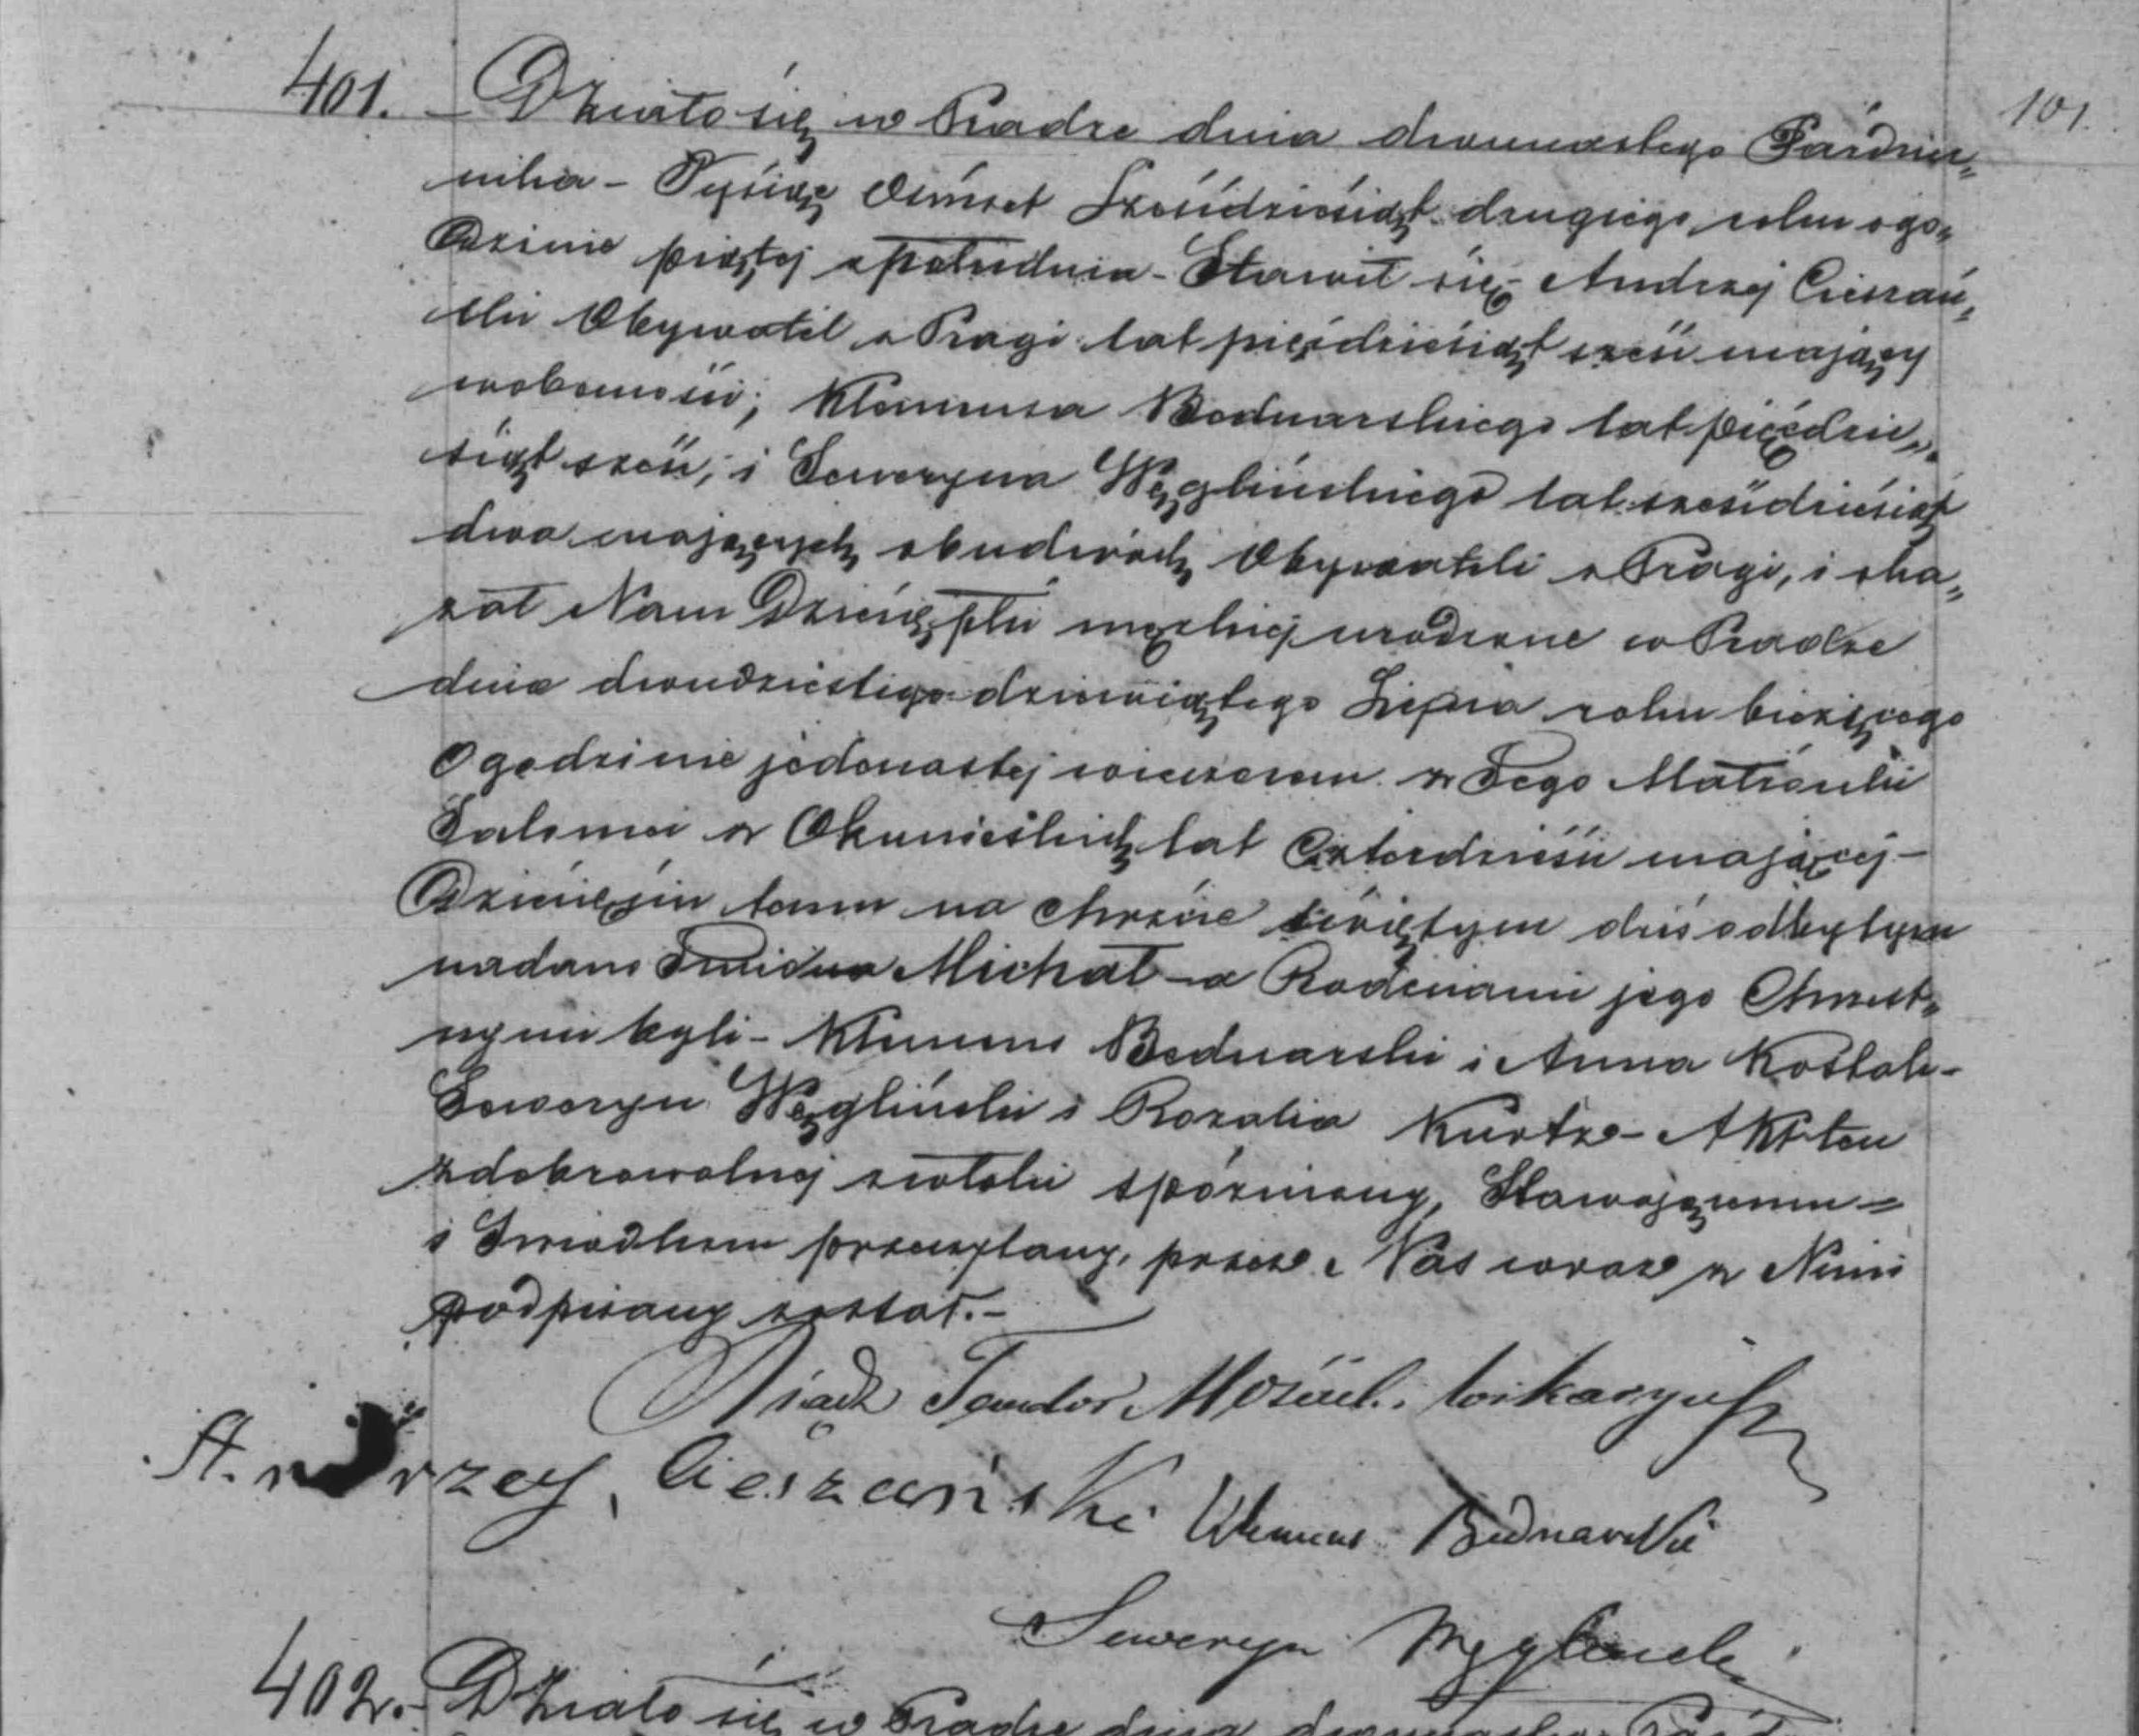 401. – Działo się w Pradze dnia dwunastego Paździer„ 101.
nika – Tysiąc Ośmset Sześćdziesiąt drugiego roku o go„
dzinie piątej z południa – Stawił się Andrzej Cieszań„
ski Obywatel z Pragi lat pięćdziesiąt sześć mający
w obecności; Klemensa Bednarskiego lat pięćdzie„
siąt sześć, i Seweryna Węglińskiego lat sześćdziesiąt
dwa mających obudwóch Obywateli z Pragi, i oka„
zał Nam Dziecię płci męzkiej urodzone w Pradze
dnia dwudziestego dziewiątego Lipca roku bieżącego
O godzinie jedenastej wieczorem z Jego Małżonki
Salomei z Okunieskich lat Czterdzieści mającej –
Dziecięciu temu na chrzcie świętym dziś odbytym
nadano Imię Michał – a Rodzicami jego Chrzest„
nymi byli – Klemens Bednarski i Anna
Seweryn Węgliński i Rozalia Kurtze – Akt ten
z dobrowolnej zwłoki spóźniony, Stawającemu =
i Świadkom przeczytany, przez Nas wraz z Nimi
podpisany został. –
Xiądz Teodor wikaryusz
Andrzej Cieszański Klemens Bednarski
Seweryn Węgliński
402. – Działo się w Pradze dnia dwunastego